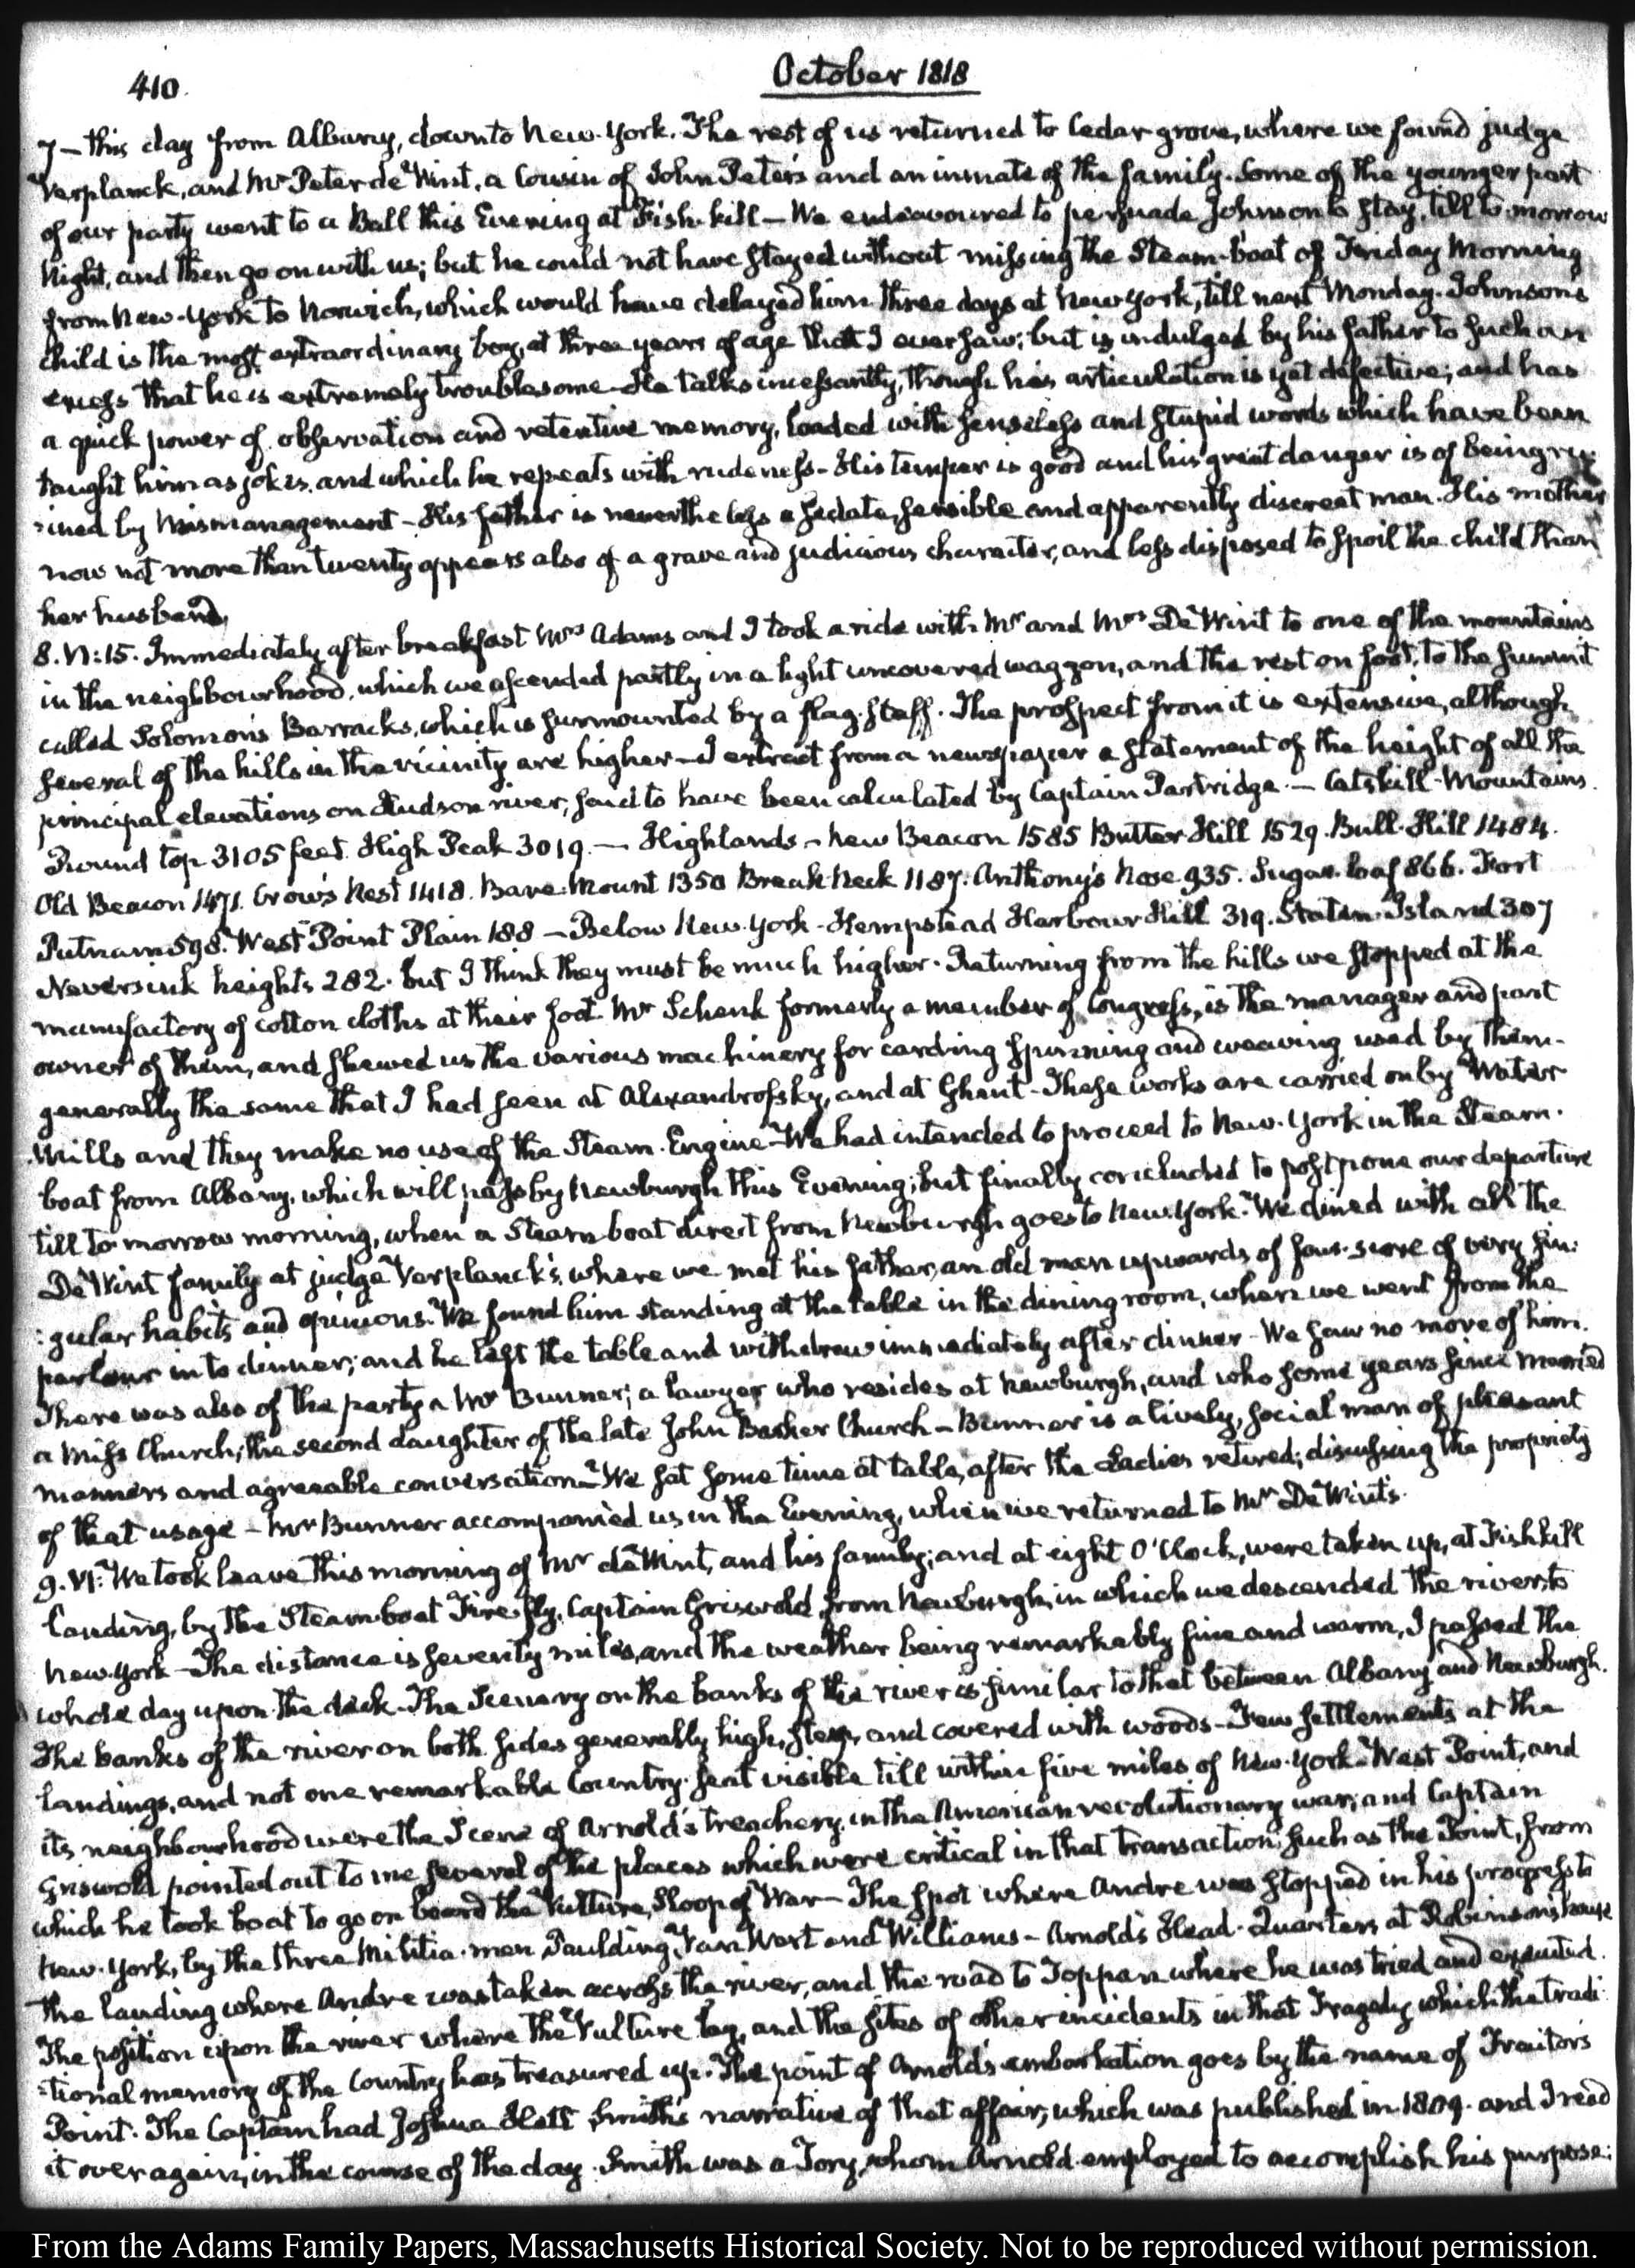 410.
October 1818
7 — this day from Albany, down to New-York. The rest of us returned to Cedar grove, where we found judge
Verplanck, and Mr Peter de Wint, a Cousin of John Peter's and an inmate of the family. Some of the younger part
of our party went to a Ball this Evening at Fish-kill — We endeavoured to persuade Johnson to stay, till to-morrow
Night, and then go on with us; but he could not have stayed without missing the Steam-boat of Friday Morning
from New-York to Norwich, which would have delayed him three days at New York, till next Monday. Johnson's
child is the most extraordinary boy, at three years of age that I ever saw; but is indulged by his father to such an
excess that he is extremely troublesome — He talks incessantly, though his articulation is yet defective; and has
a quick power of observation and retentive memory, loaded with senseless and stupid words which have been
taught him as jokes, and which he repeats with rudeness — His temper is good and his great danger is of being ru-
:ined by Mismanagement — His father is nevertheless a sedate, sensible and apparently discreet man. His mother
now not more than twenty appears also of a grave and judicious character, and less disposed to spoil the child than
her husband.
8. VI:15. Immediately after breakfast Mrs Adams and I took a ride with Mr and Mrs De Wint to one of the mountains
in the neighbourhood, which we ascended partly in a light uncovered waggon, and the rest on foot, to the summit
called Solomon's Barracks, which is surmounted by a flag-staff. The prospect from it is extensive, although
several of the hills in the vicinity are higher — I extract from a newspaper a statement of the height of all the
principal elevations on Hudson river, said to have been calculated by Captain Partridge. — Catskill-Mountains.
Round top 3105 feet. High Peak 3019. — Highlands — New Beacon 1585 Butter-Hill 1529. Bull-Hill 1484.
Old Beacon 1471. Crow's Nest 1418. Bare-Mount 1350 Break Neck 1187. Anthony's Nose 935. Sugar-loaf 866. Fort
Putnam 598. West Point Plain 188 — Below New-York — Hempstead Harbour Hill 319. Staten-Island 307
Neversink heights 282. but I think they must be much higher. Returning from the hills we stopped at the
manufactory of cotton cloths at their foot. Mr Schenk formerly a member of Congress, is the manager and part
owner of them, and shewed us the various machinery for carding spinning and weaving used by them.
generally the same that I had seen at Alexandrofsky, and at Ghent — These works are carried on by Water
Mills and they make no use of the Steam-Engine — We had intended to proceed to New-York in the Steam-
boat from Albany, which will pass by Newburgh this Evening; but finally concluded to postpone our departure
till to-morrow morning, when a Steam-boat direct from Newburgh goes to New-York. We dined with all the
De Wint family at judge Verplanck's, where we met his father, an old man upwards of four-score of very sin-
:gular habits and opinions. We found him standing at the table in the dining room, when we went from the
parlour in to dinner; and he left the table and withdrew immediately after dinner — We saw no more of him.
There was also of the party a Mr Bunner; a lawyer who resides at Newburgh, and who some years since married
a Miss Church, the second daughter of the late John Barker Church — Bunner is a lively, social man of pleasant
manners and agreeable conversation — We sat some time at table, after the Ladies retired; discussing the propriety
of that usage — Mr Bunner accompanied us in the Evening, when we returned to Mr De Wint's.
9. VI. We took leave this morning of Mr de Wint, and his family; and at eight O'Clock, were taken up, at Fishkill
landing, by the Steam-boat Fire-fly, Captain Griswold from Newburgh, in which we descended the river, to
New-York — The distance is seventy miles, and the weather being remarkably fine and warm, I passed the
whole day upon the deck. The Scenery on the banks of the river is similar to that between Albany and Newburgh.
The banks of the river on both sides generally high, steep, and covered with woods — Few settlements at the
landings, and not one remarkable Country-seat visible till within five miles of New-York — West Point, and
its neighbourhood were the Scene of Arnold's treachery, in the American revolutionary war, and Captain
Griswold pointed out to me several of the places which were critical in that transaction; such as the Point, from
which he took boat to go on board the Vulture, Sloop of War — The spot where Andre was stopped in his progress to
New-York, by the three Militia-men Paulding, Van Wart and Williams — Arnold's Head-Quarters at Robinson's house
The landing where Andre was taken across the river, and the road to Toppan where he was tried and executed.
The position upon the river where the Vulture lay, and the sites of other incidents in that Tragedy which the tradi-
:tional memory of the Country has treasured up. The point of Arnold's embarkation goes by the name of Traitors
Point. The Captain had Joshua Hett Smith's narrative of that affair, which was published in 1809. and I read
it over again, in the course of the day. Smith was a Tory, whom Arnold employed to accomplish his purpose:
From the Adams Family Papers, Massachusetts Historical Society. Not to be reproduced without permission.